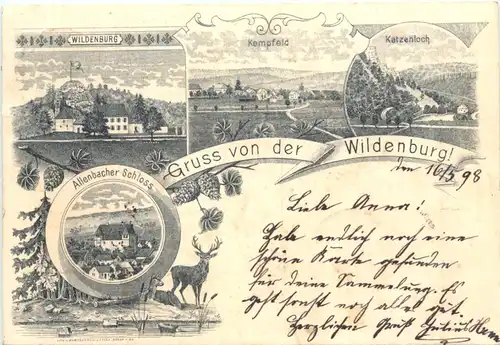 WILDENBURG
Kempfeld
Katzenloch.
Allenbacher Schloss.
Gruss von der Wildenburg!
den 16/5 98
Liebe Anna!
Habe endlich noch eine
schöne Karte gefunden
für deine Sammlung. Es
geht sonst noch alles gut.
Herzlichen Gruß